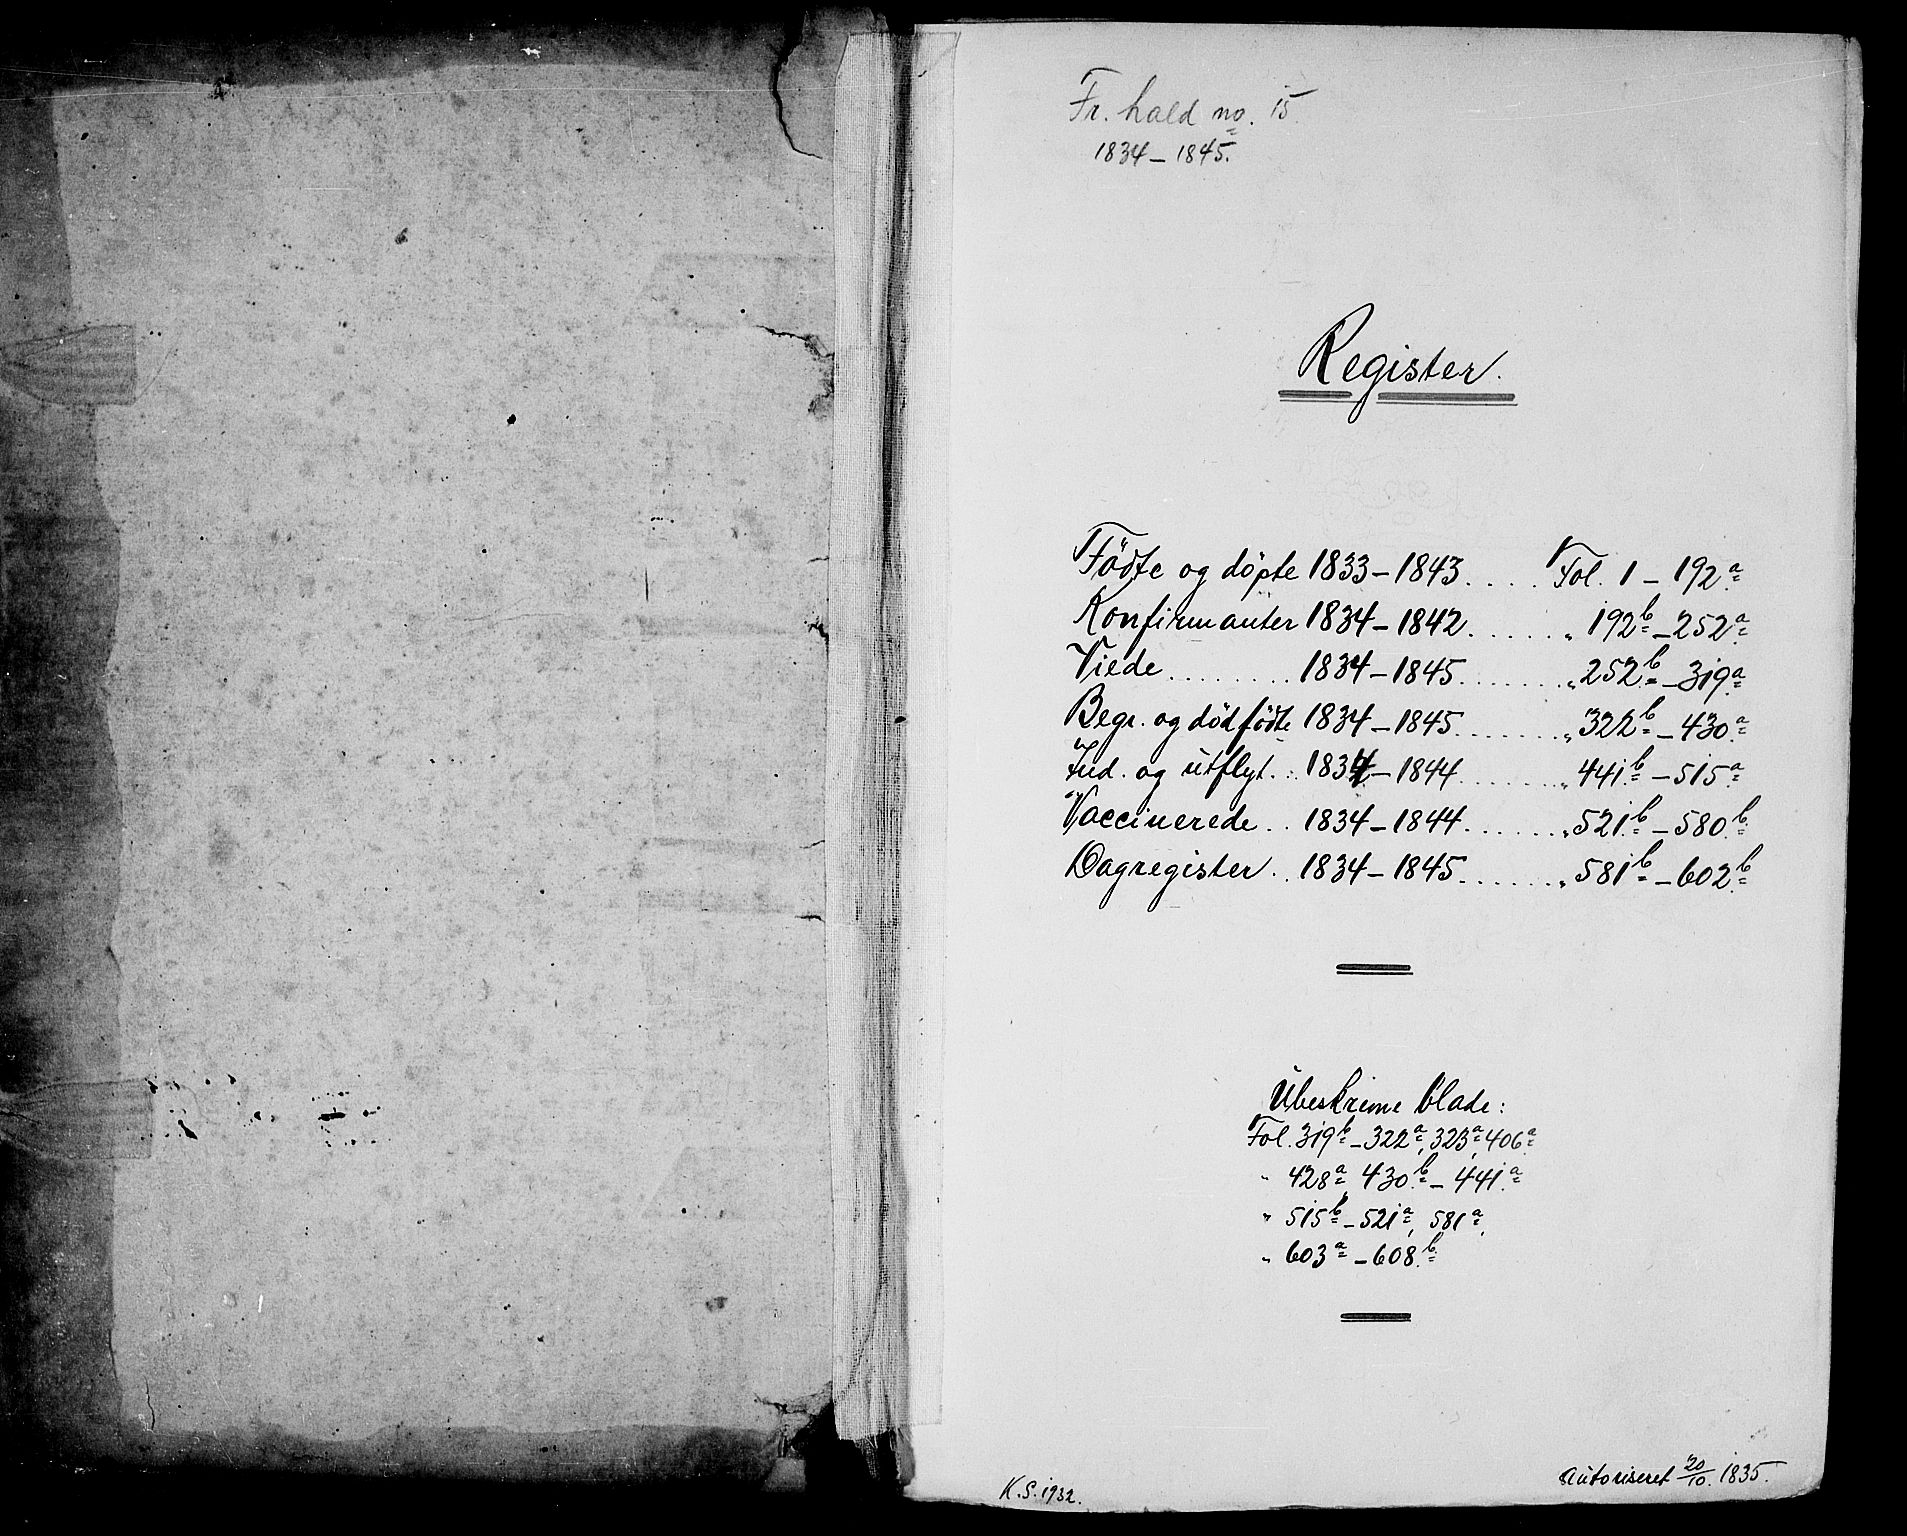 Fr. hald no. 15.
1834 – 1845.
Register.
Födte og döpte 1833 – 1843 . . . . Fol. 1 – 192a
Konfirmanter 1834 – 1842 . . . . . . „ 192b – 252a
Viede . . . . . . . . 1834 – 1845 . . . . . . . „ 252b – 319a
Begr. og dödfödte 1834 – 1845 . . . . . . . „ 322b – 430a
Ind. og utflyt. . . 1834 – 1844 . . . . . . . „ 441b – 515a
Vaccinerede . . 1834 – 1844 . . . . . . . „ 521b – 580b
Dagregister . . 1834 – 1845 . . . . . . . „ 581b – 602b
Ubeskrevne blade:
Fol. 319b – 322a, 323a, 406a
„ 428a, 430b – 441a
„ 515b – 521a, 581a,
„ 603a – 608b
K.S. 1932.
Autoriseret 20/10. 1835.